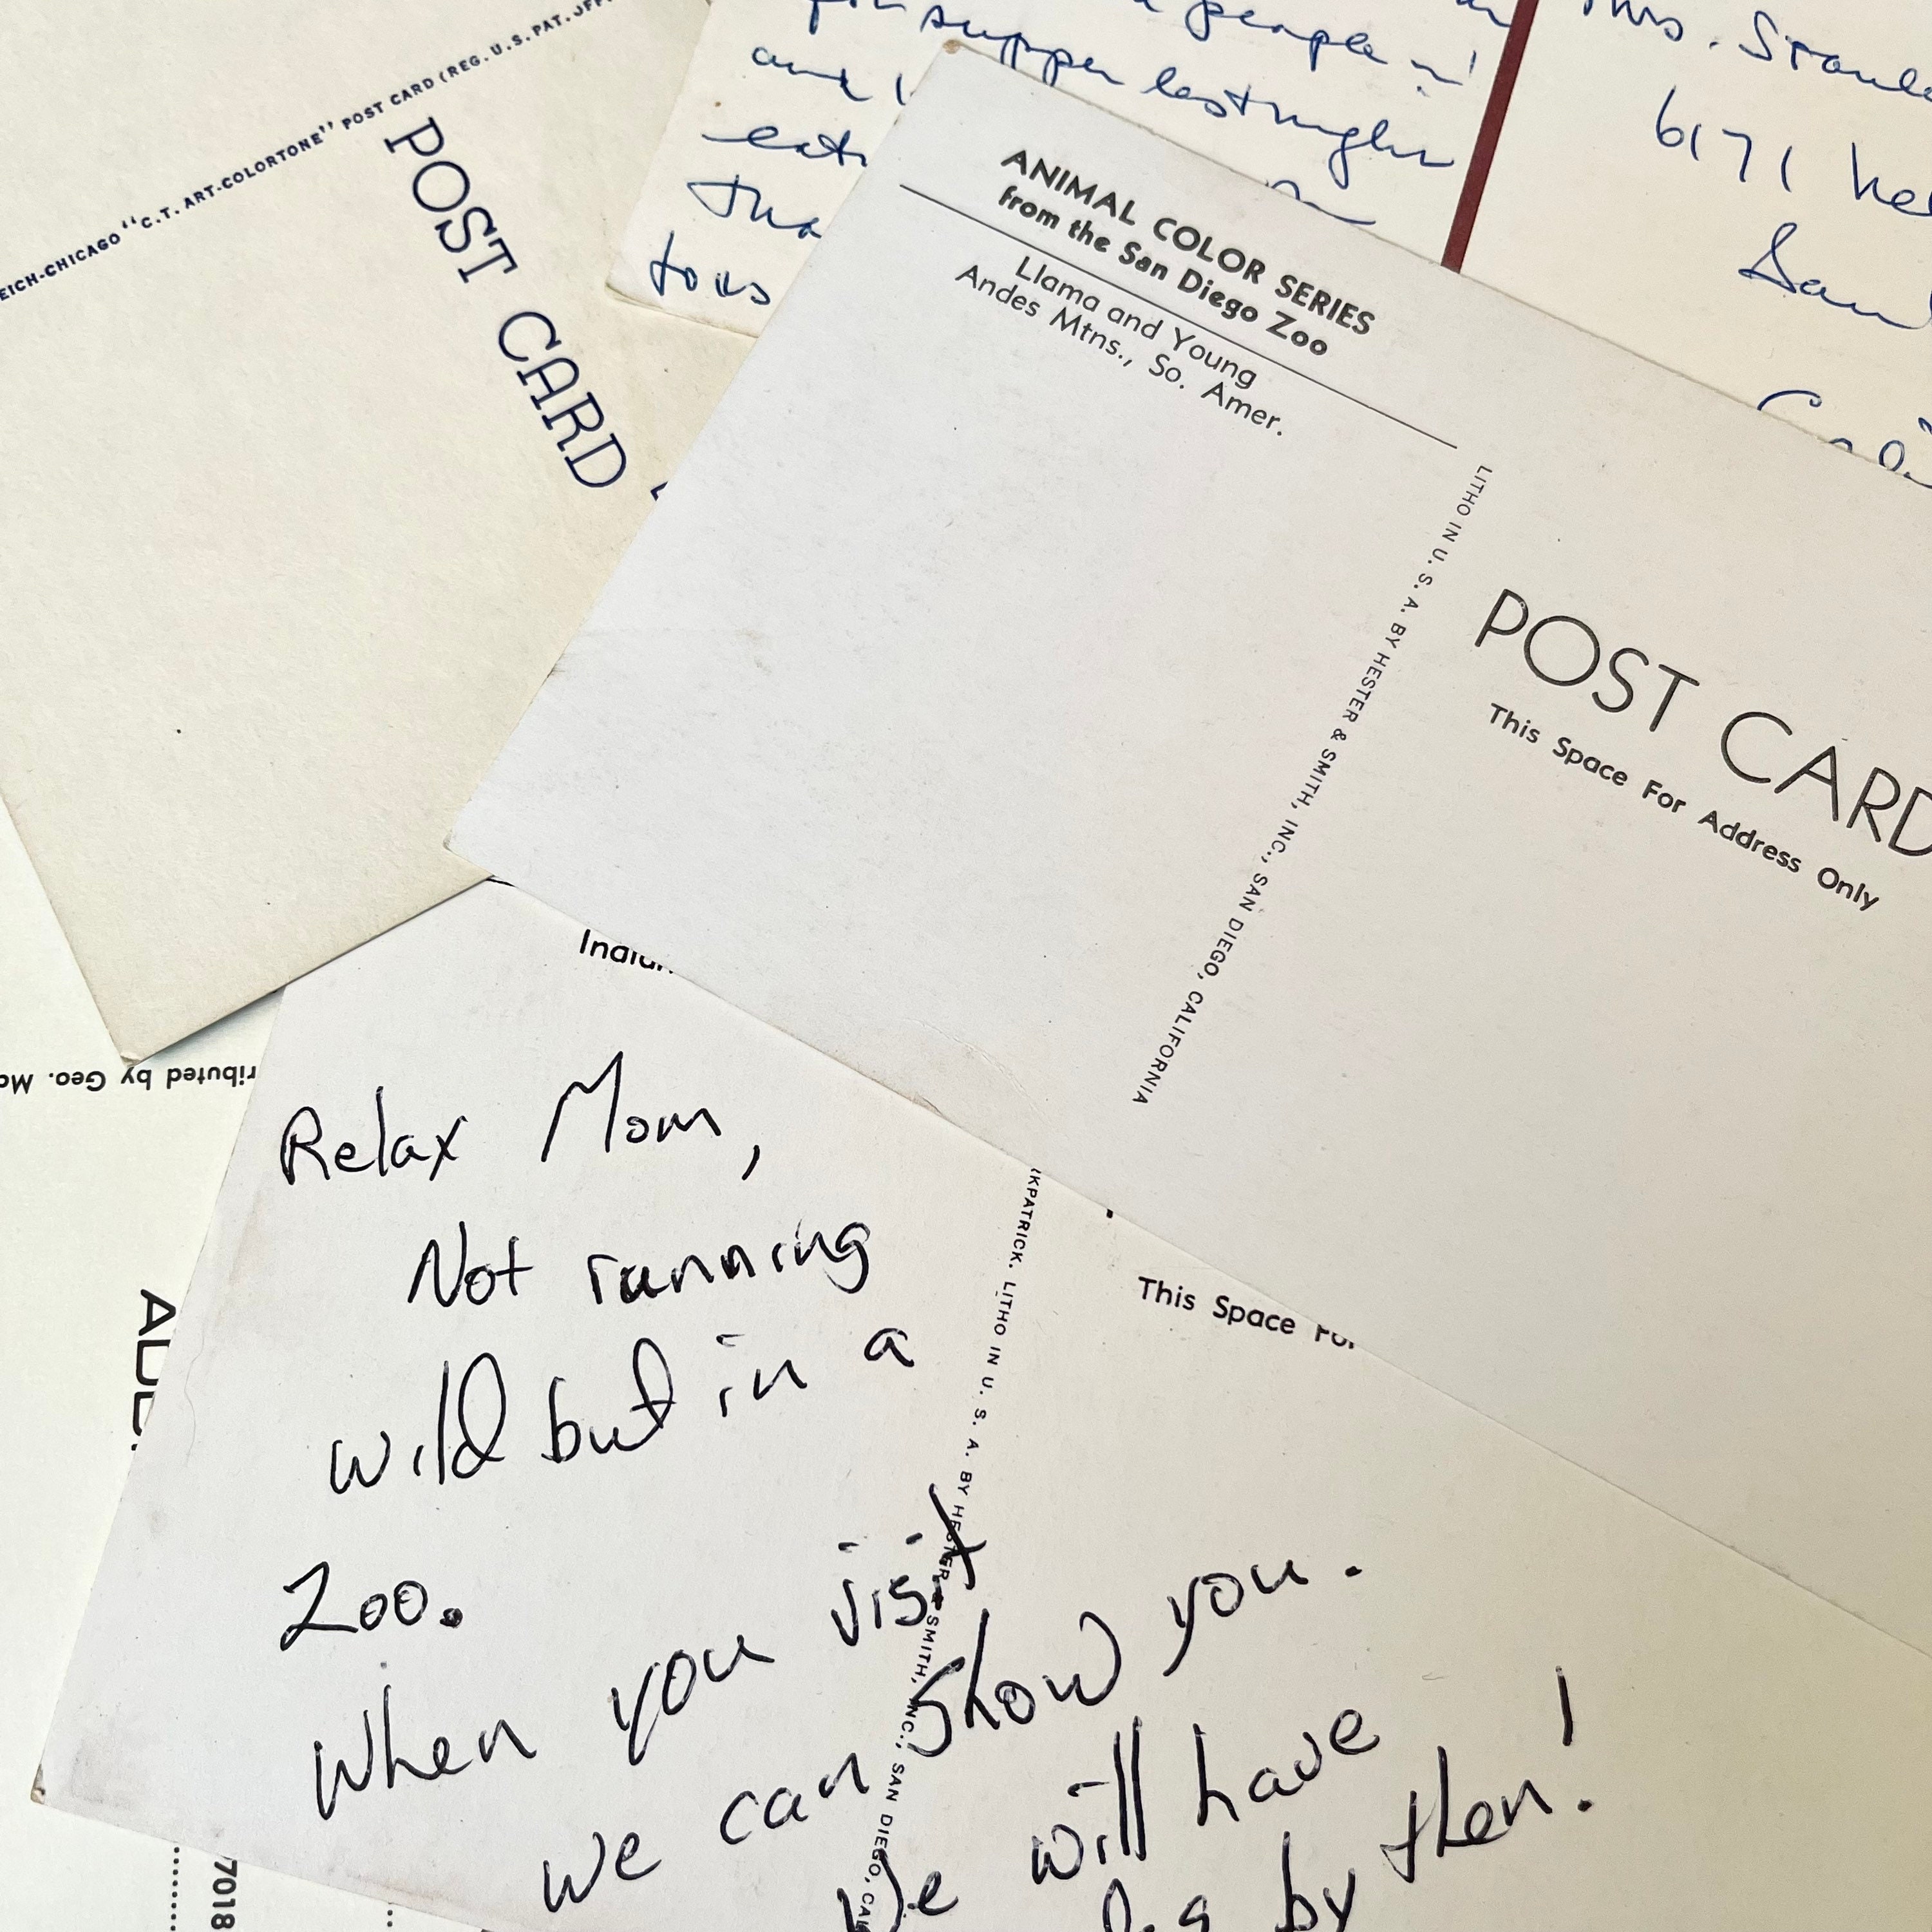 EICH-CHICAGO "C.T. ART-COLORTONE" POST CARD (REG. U.S. PAT.
POST CARD
people in
supper last night
and
eat
tous
Mrs.
6171
San
ANIMAL COLOR SERIES
from the San Diego Zoo
Llama and Young
Andes Mtns., So. Amer.
LITHO IN U. S. A. BY HESTER & SMITH, INC., SAN DIEGO, CALIFORNIA
POST CARD
This Space For Address Only
ributed by Geo.
KPATRICK. LITHO IN U. S. A. BY HESTER & SMITH, INC., SAN DIEGO, CAL
This Space For
Relax Mom,
Not running
wild but in a
Zoo.
When you visit
we can show you.
We will have
by then!
7018